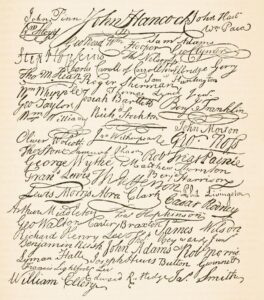 John Penn John Hancock John Hart
Wm Paca
Geo Read Wm Hooper Sam Adams
Step Hopkins Ths Nelson Jr
Charles Carroll of Carrollton Elbridge Gerry
Roger Sherman Sam Huntington
Wm Whipple Thomas
Geo Taylor Josiah Bartlett Benj Franklin
Wm Williams Rich Stockton
John Morton
Oliver Wolcott Jno Witherspoon Geo Ross
Samuel Chase Robt Treat Paine
George Wythe Matthew Thornton
Fran Lewis Th Jefferson Benj Harrison
Lewis Morris Abra Clark Phil Livingston
Caesar Rodney
Arthur Middleton Fras Hopkinson
Geo Walton Carter Braxton James Wilson
Richard Henry Lee Heyward
Benjamin Rush John Adams Robt Morris
Lyman Hall Joseph Hewes Button Gwinnett
Francis Lightfoot Lee
William Ellery Edward Rutledge Jas Smith